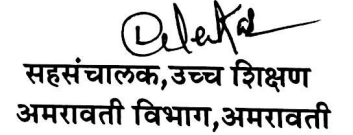 सहसंचालक,उच्च शिक्षण
अमरावती विभाग,अमरावती